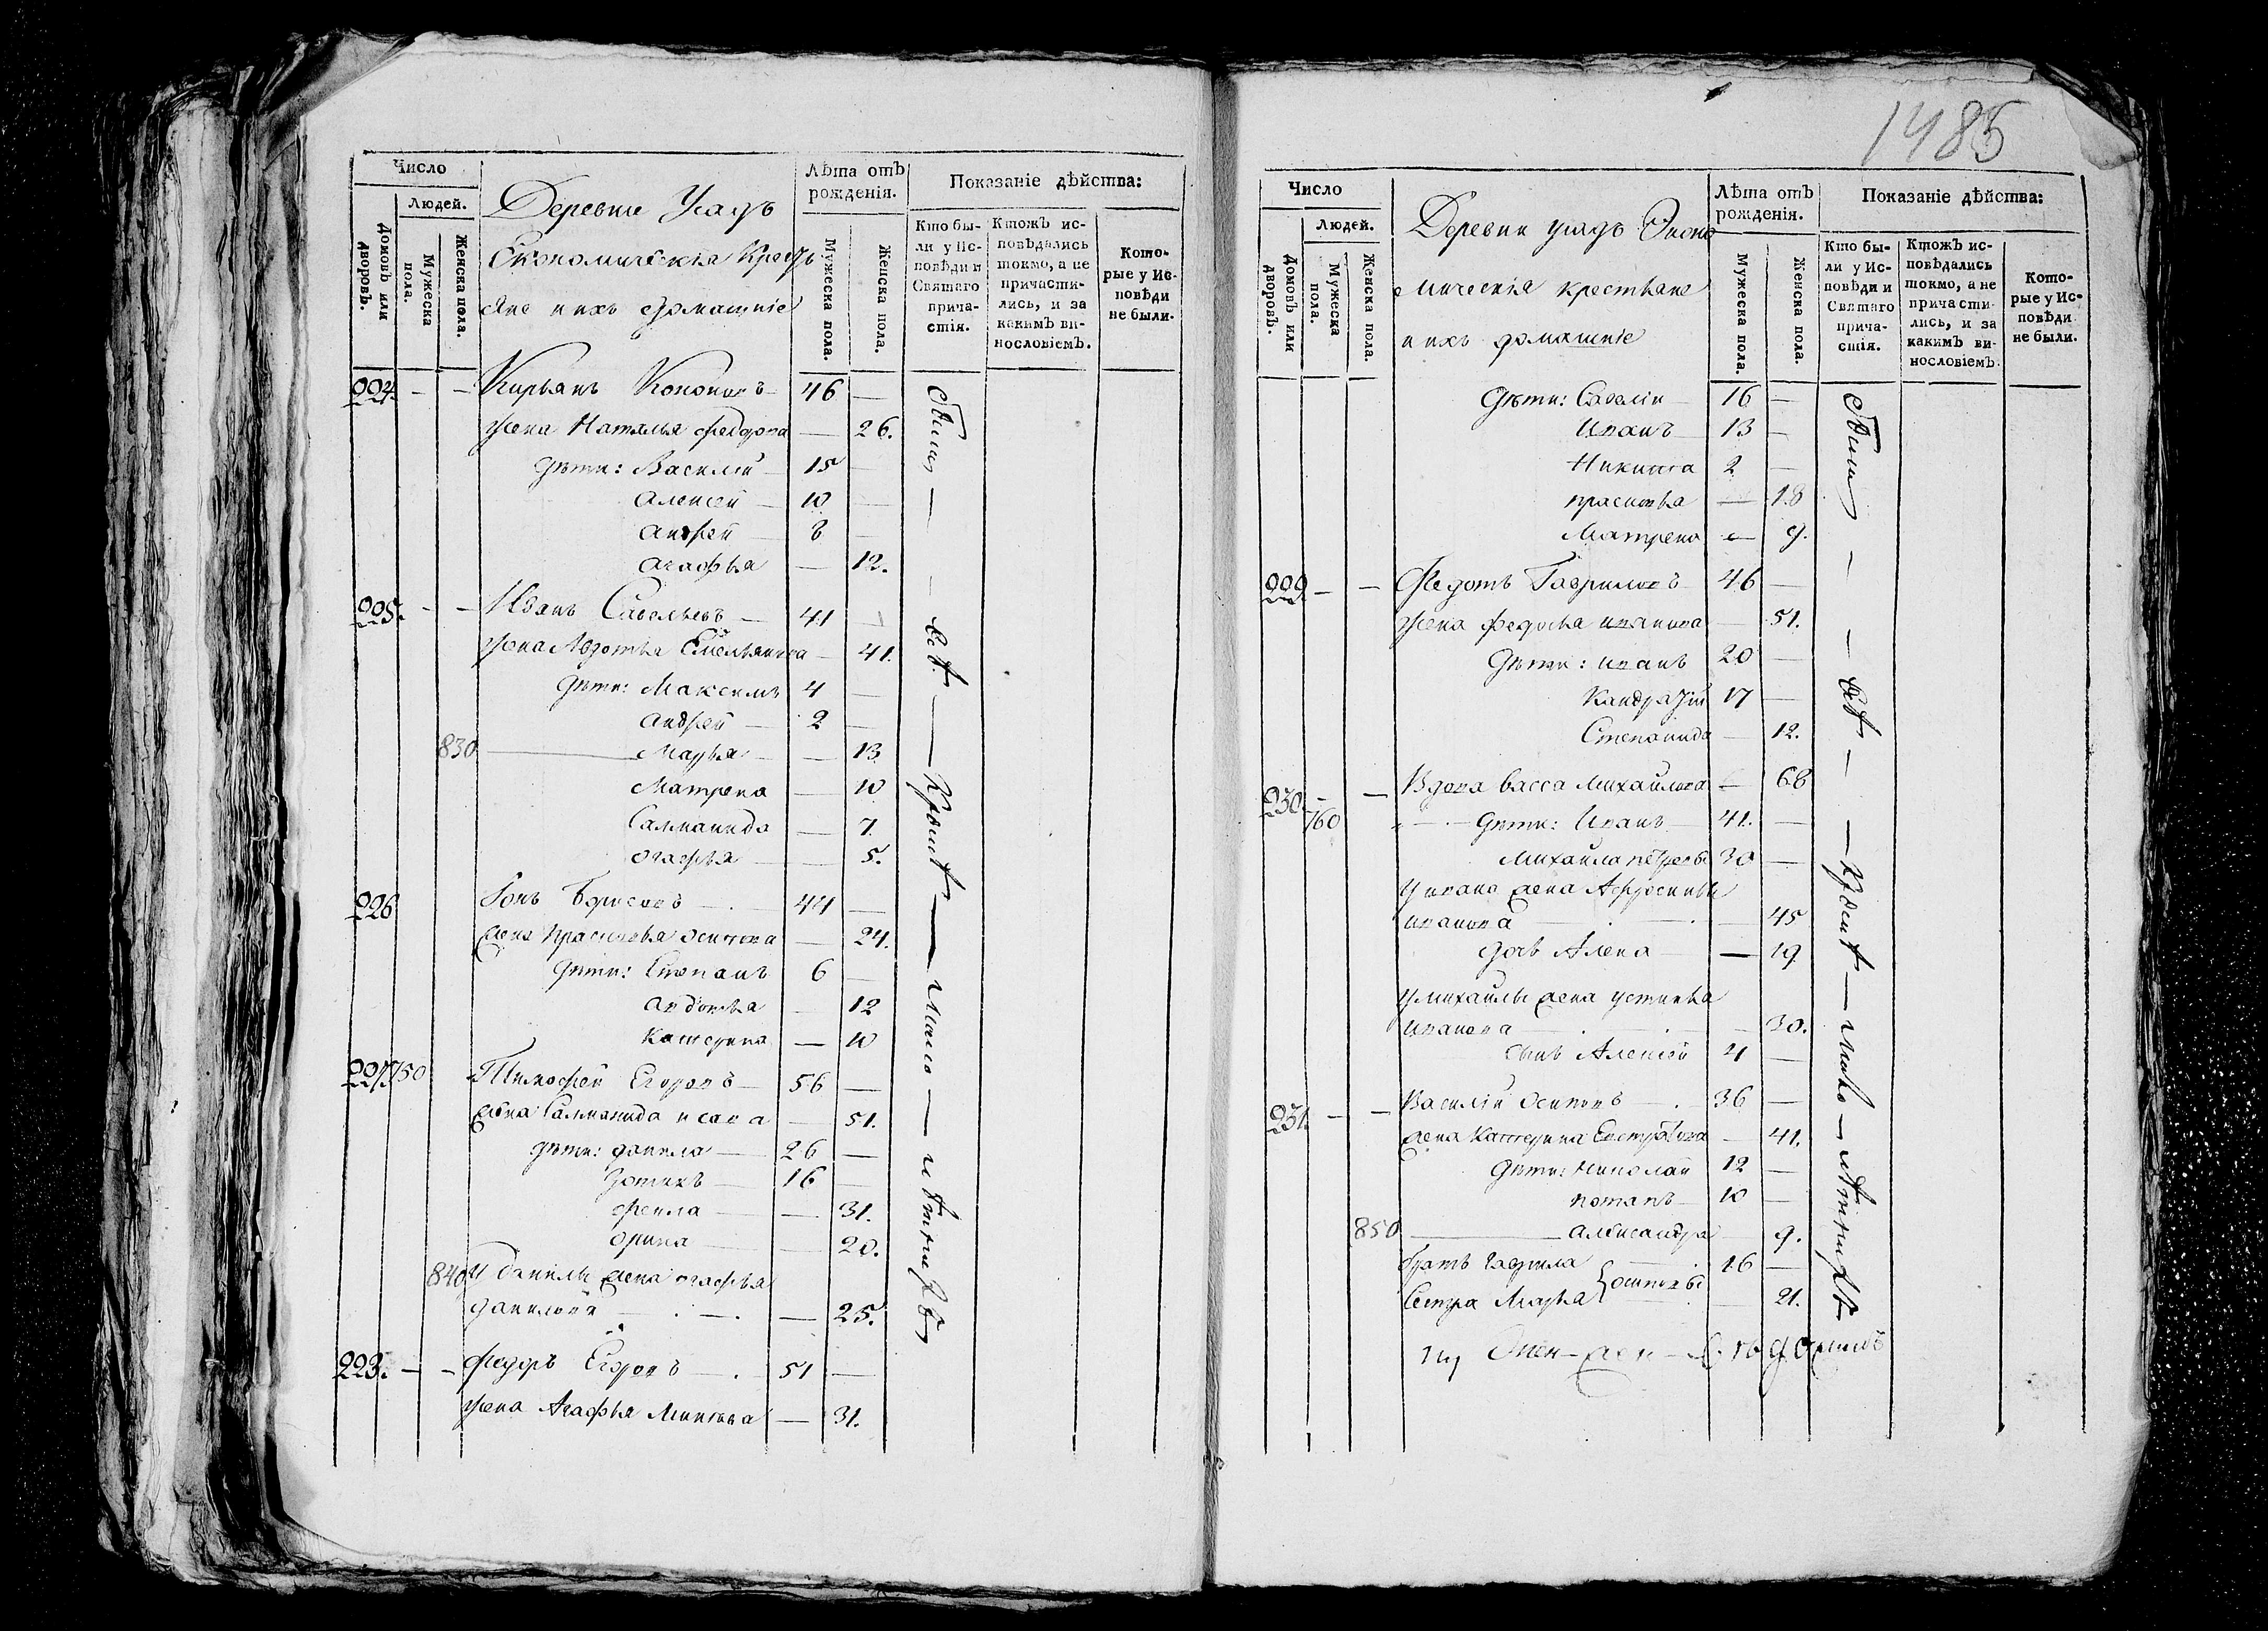 Число
Людей.
Домовъ или дворовъ.
Мужеска пола.
Женска пола.
Деревни Усадъ
Економическія Крестъ
яне и ихъ домашніе
Лѣта отъ рожденія.
Мужеска пола.
Женска пола.
Показаніе дѣйства:
Кто бы-
ли у Ис-
повѣди и
Святаго
прича-
стія.
Ктожъ ис-
повѣдались
токмо, а не
причасти-
лись, и за
какимъ ви-
нословіемъ.
Кото-
рые у Ис-
повѣди
не были.
224. — — Кирьанъ Кононовъ 46 —
жена Наталья Федорова — 26.
дѣти: Василій 15 —
Алексей 10 —
Андрей 8 —
Агафья — 12.
225. — — Иванъ Савельевъ 41 —
жена Авдотья Емельянова — 41.
дѣти: Максимъ 4 —
Андрей 2 —
830 Марья — 13
Матрена — 10
Саламанида — 7.
Огафья — 5.
226 Борисовъ 44 —
жена Прасковья Осипова — 24.
дѣти: Степанъ 6 —
Авдотья — 12
Катерина — 10
227 750 Тимофей Егоровъ 56 —
жена — 51.
дѣти: Данила 26 —
16 —
Фекла — 31.
Орина — 20.
840 У Данилы жена Огафья
Данилова — 25.
223. — — Федоръ Егоровъ 51 —
жена Агафья — 31.
были — всѣ — кромѣ — мало — лѣтнихъ
1485
Число
Людей.
Домовъ или дворовъ.
Мужеска пола.
Женска пола.
Деревни усадъ Эконо
мическія крестьяне
и ихъ домашніе
Лѣта отъ рожденія.
Мужеска пола.
Женска пола.
Показаніе дѣйства:
Кто бы-
ли у Ис-
повѣди и
Святаго
прича-
стія.
Ктожъ ис-
повѣдались
токмо, а не
причасти-
лись, и за
какимъ ви-
нословіемъ.
Кото-
рые у Ис-
повѣди
не были.
дѣти: Савелій 16 —
Иванъ 13 —
Никита 2 —
Прасковья — 18
Матрена — 9.
229 — — Федотъ Гавриловъ 46 —
жена Федосья Иванова — 51.
дѣти: Иванъ 20 —
Кандратій 17 —
Степанида — 12.
230. — — Вдова Васса Михайлова — 68
760 дѣти: Иванъ 41. —
Михайла Петровы 30 —
У Ивана жена Афросинья
Иванова — 45
дочь Алена — 19
У Михайлы жена Устинья
Иванова — 30.
сынъ Алексей 4 —
231. — — Василій Осиповъ 36 —
жена Катерина — 41.
дѣти: Николай 12 —
Потапъ 10 —
850 Александра — 9.
братъ Гаврила 16 —
Сестра Марья Осиповы — 21.
были — всѣ — кромѣ — мало — лѣтнихъ